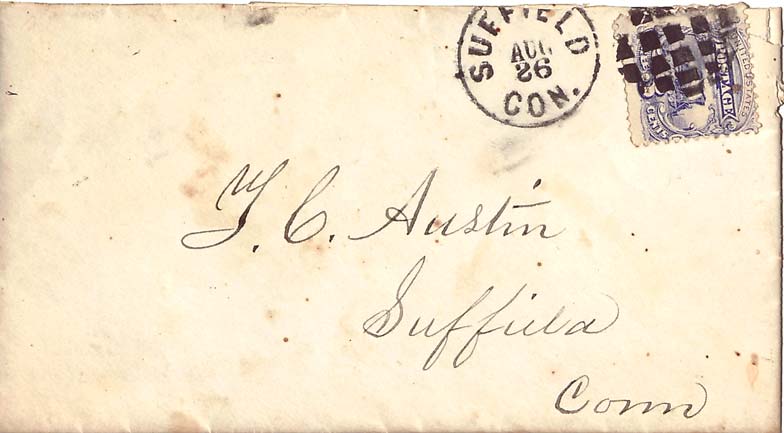 SUFFIELD
AUG
26
CON.
UNITED STATES
POSTAGE
CENTS
T. C. Austin
Suffield
Conn